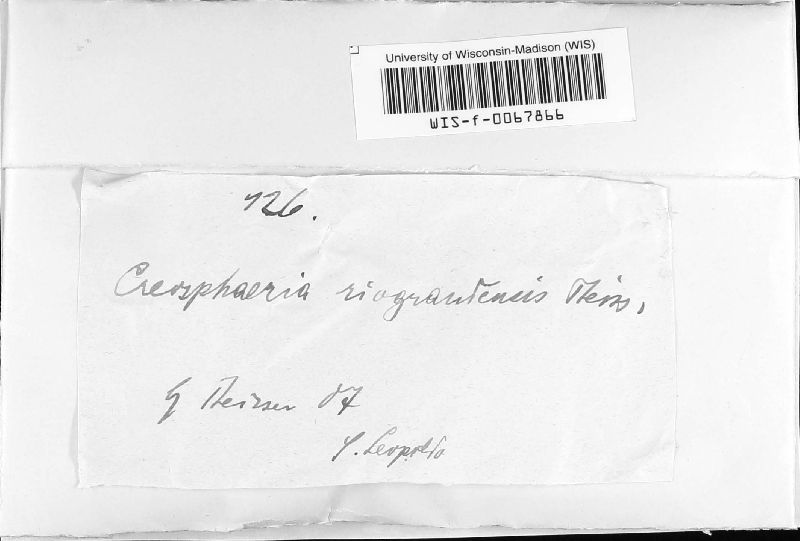 University of Wisconsin-Madison (WIS)
WIS-f-0067866
126.
Creosphaeria riograndensis Theiss,
Theissen 07
S. Leopoldo